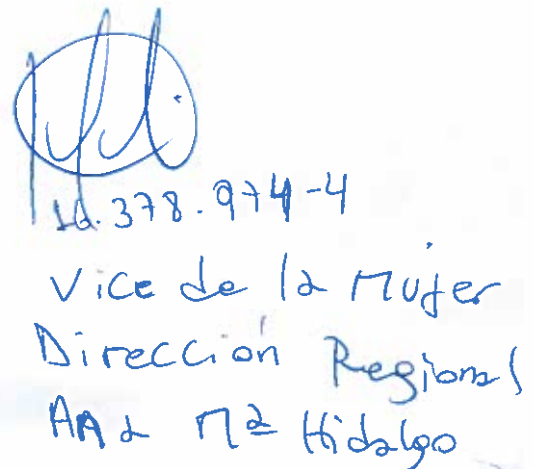 16.378.974-4
Vice de la Mujer
Dirección Regional
ANA Mª Hidalgo